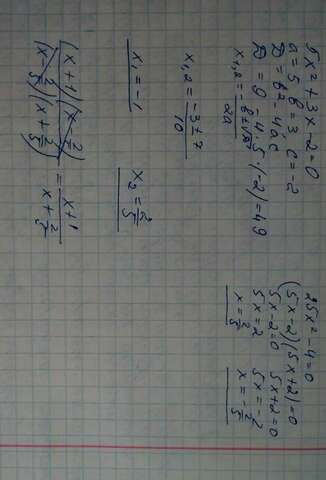 5x² + 3x - 2 = 0
a = 5 b = 3 c = -2
D = b² - 4ac
D = 9 - 4·5·(-2) = 49
x₁,₂ = (-b ± √D)/2a
x₁,₂ = (-3 ± 7)/10
x₁ = -1 x₂ = 2/5
(x + 1)(x - 2/5)/(x - 2/5)(x + 2/5) = (x + 1)/(x + 2/5)
25x² - 4 = 0
(5x - 2)(5x + 2) = 0
5x - 2 = 0 5x + 2 = 0
5x = 2 5x = -2
x = 2/5 x = -2/5